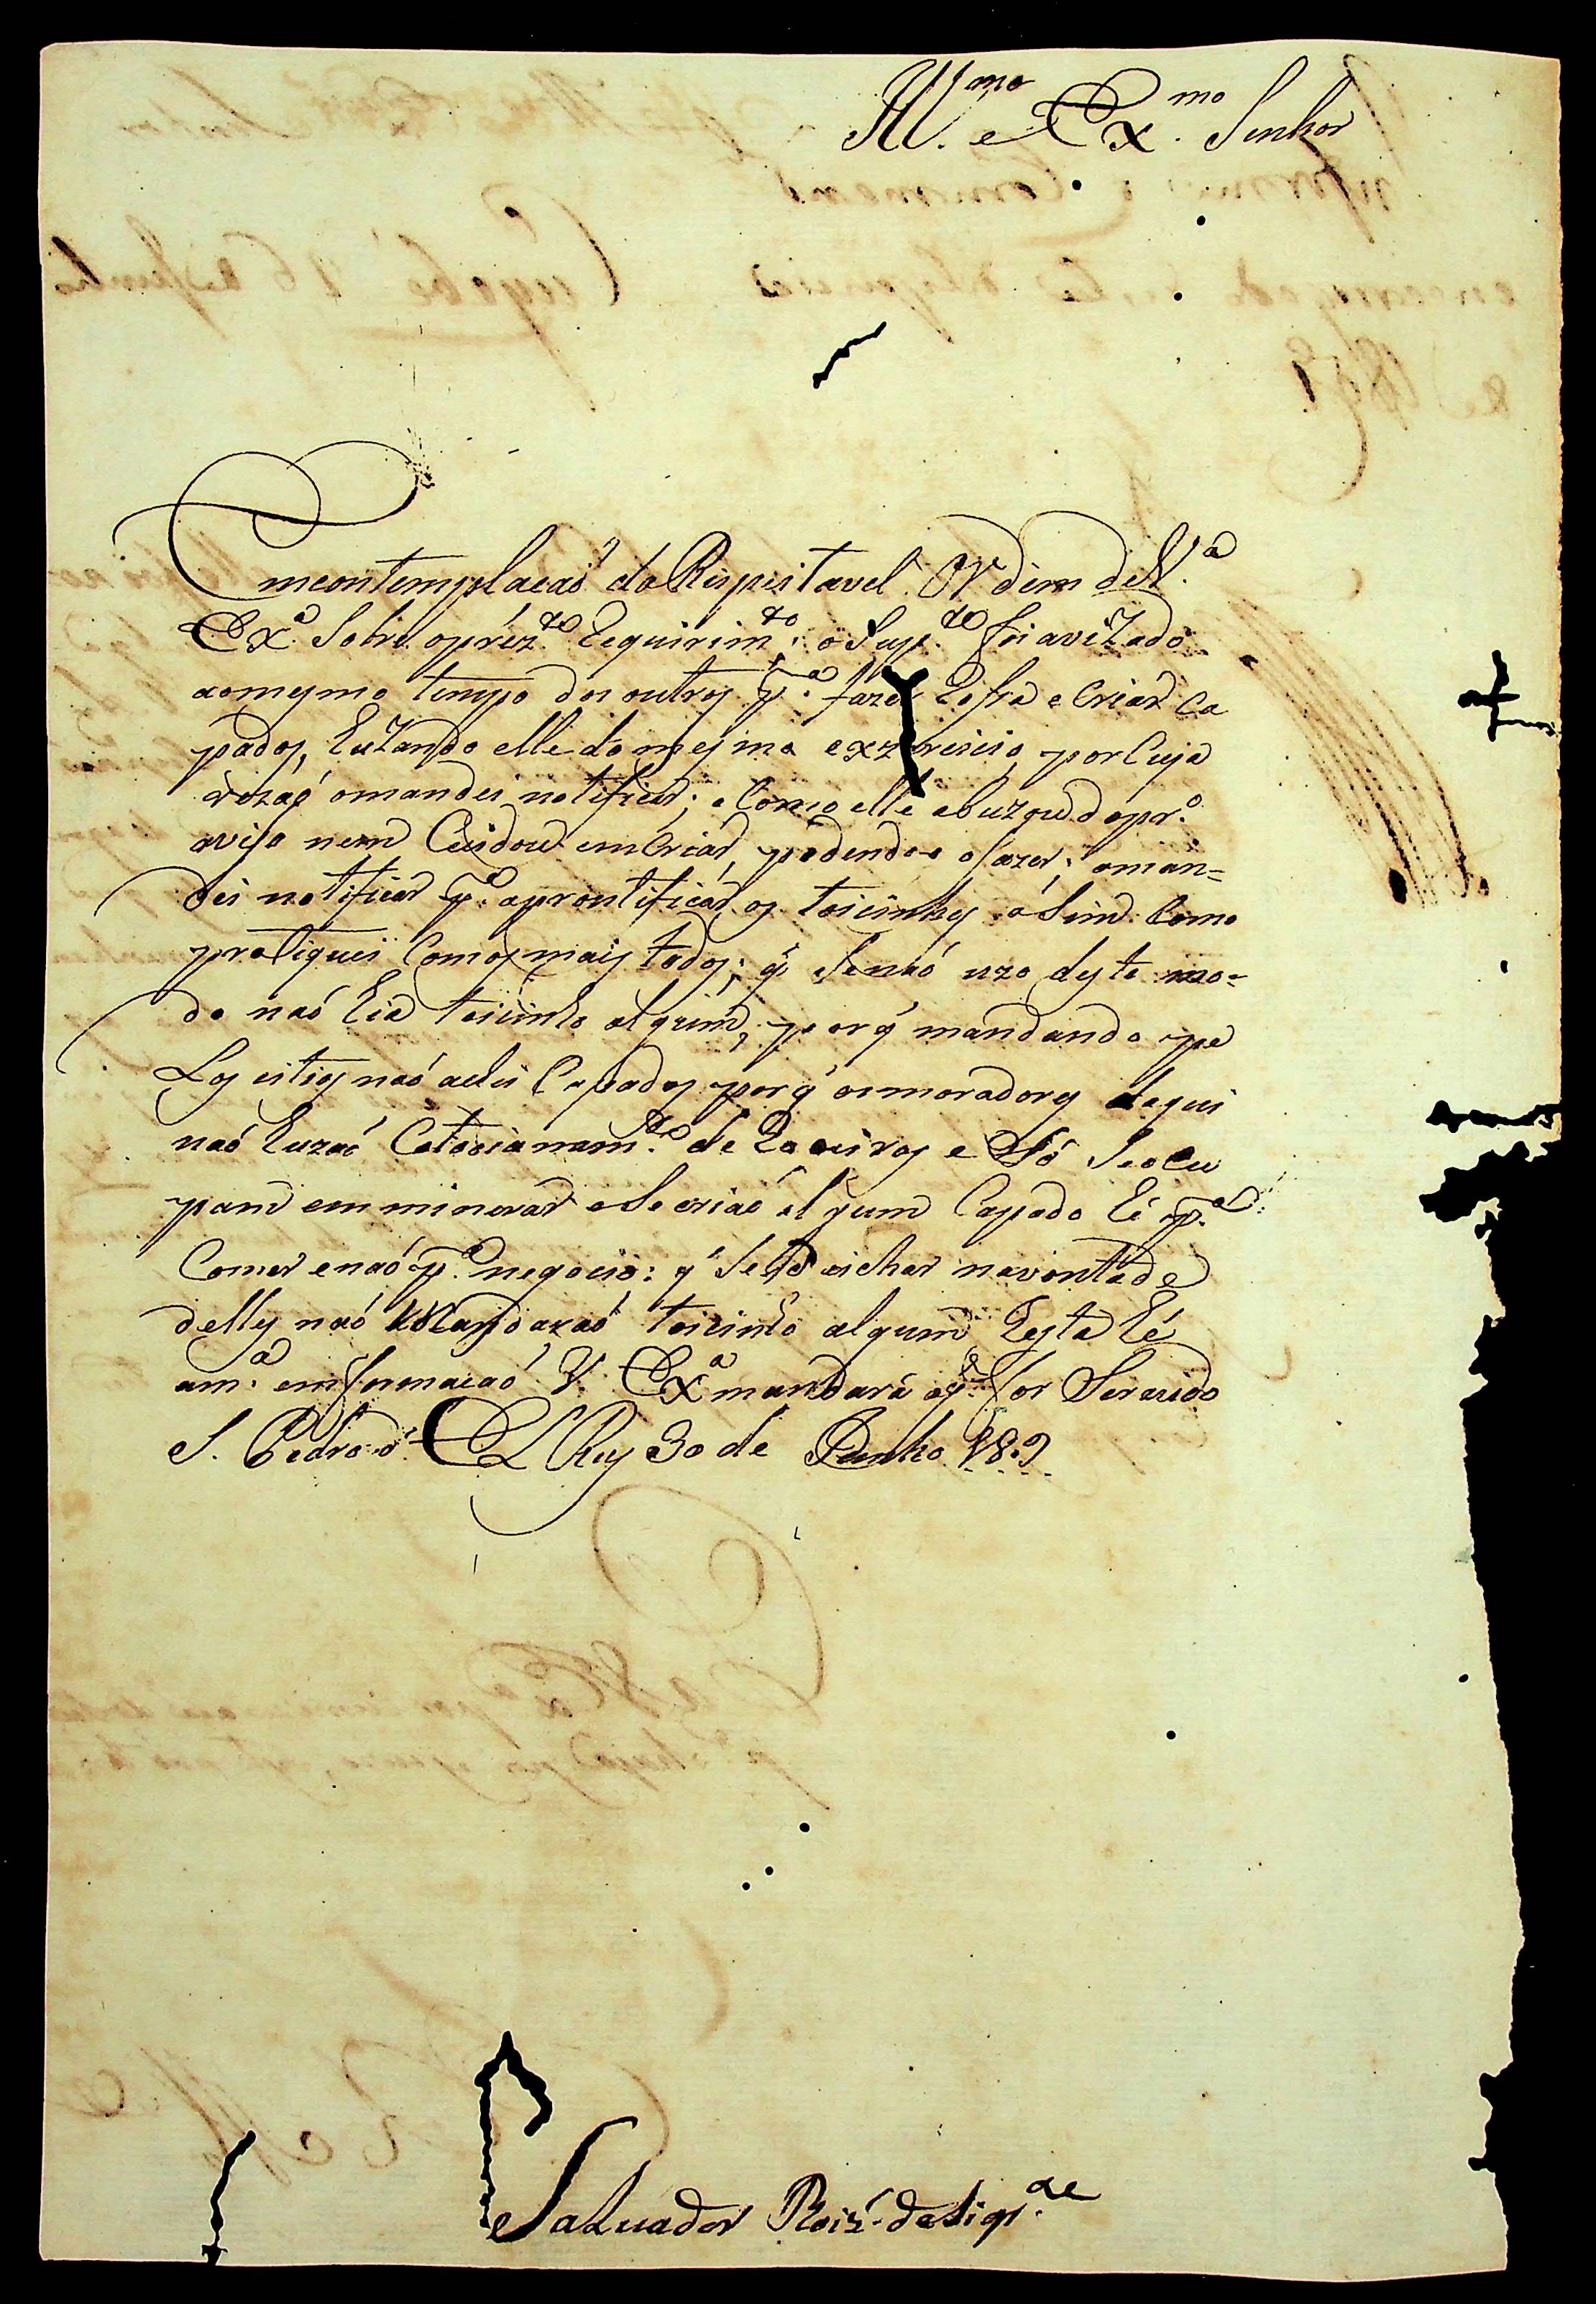 Ill.mo e Ex.mo Senhor
Emcontemplacaõ da Rispeitavel Ordem de V.a
Ex.a Sobre o prez.te Requirim.to; o Sup.te foi avizado
aomesmo tempo dos outros p.a fazer Rosa e Criar Ca
pados, Euzando elle do mesmo exzercicio, por Cuja
rezaõ omandei notificar; e Como elle abuzou do pr.o
avizo nem Cuidou emCriar, podendo o fazer; oman=
dei notificar p.a aprontificar os toicinhos aSim Como
pratiquei Comos mais todos; q̃ Senaõ uzo deste mo=
do naõ hia toicinho algum, porq̃ mandando pe
Los sitios naõ achei Capados porq̃ osmoradores daqui
naõ huzaõ Cotodianam.te de Roceiros e Só Seocu
pam emminerar eSecriaõ algum Capado hé p.a
Comer enaõ p.a negocio: q̃ Se deichar navontade
delles naõ Mandaraõ toicinho algum hesta hé
am.a emformacaõ V. Ex.a mandará oq̃ for Servido
S. Pedro d' El Rey 30 de Junho 1809
Saluador Roiz' deSiqr.a